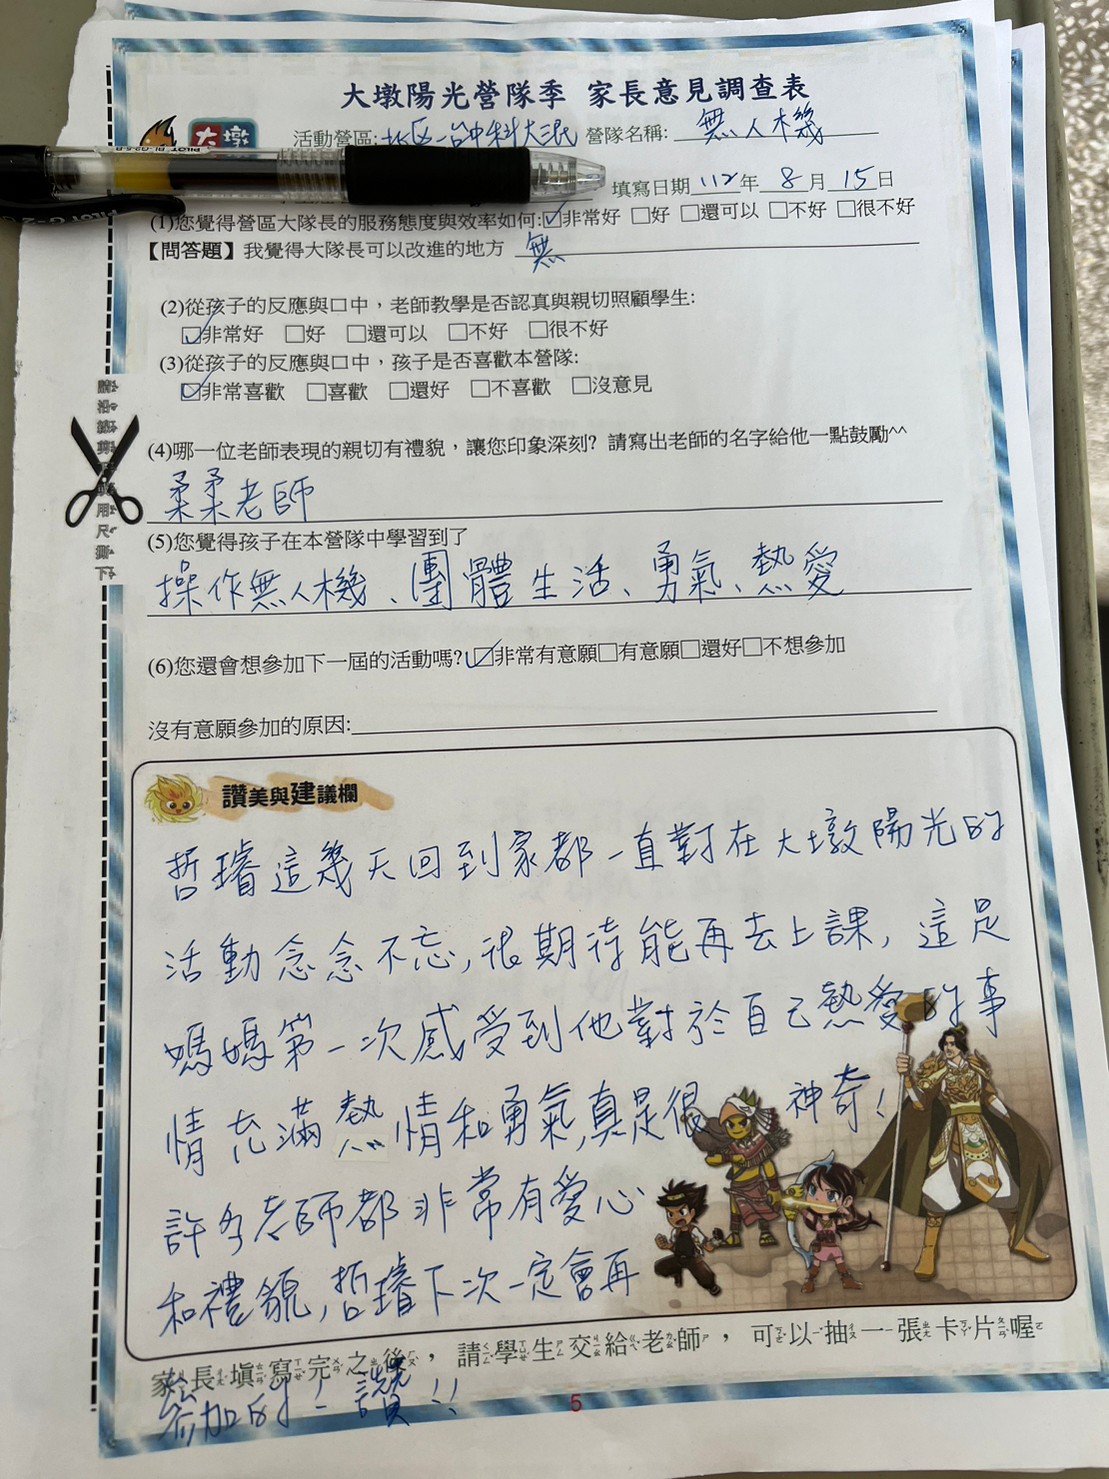 大墩陽光營隊季 家長意見調查表
大墩 活動營區:北區-台中科大三民 營隊名稱: 無人機
填寫日期 112 年 8 月 15 日
(1)您覺得營區大隊長的服務態度與效率如何:☑非常好 □好 □還可以 □不好 □很不好
【問答題】我覺得大隊長可以改進的地方 無
(2)從孩子的反應與口中，老師教學是否認真與親切照顧學生:
☑非常好 □好 □還可以 □不好 □很不好
(3)從孩子的反應與口中，孩子是否喜歡本營隊:
☑非常喜歡 □喜歡 □還好 □不喜歡 □沒意見
(4)哪一位老師表現的親切有禮貌，讓您印象深刻? 請寫出老師的名字給他一點鼓勵^^
柔柔老師
(5)您覺得孩子在本營隊中學習到了
操作無人機、團體生活、勇氣、熱愛
(6)您還會想參加下一屆的活動嗎?☑非常有意願□有意願□還好□不想參加
沒有意願參加的原因:
讚美與建議欄
哲璿這幾天回到家都一直對在大墩陽光的
活動念念不忘,很期待能再去上課,這是
媽媽第一次感受到他對於自己熱愛的事
情充滿熱情和勇氣,真是很 神奇!
許多老師都非常有愛心
和禮貌,哲璿下次一定會再
家長填寫完之後，請學生交給老師，可以抽一張卡片喔
參加的!讚!!
5